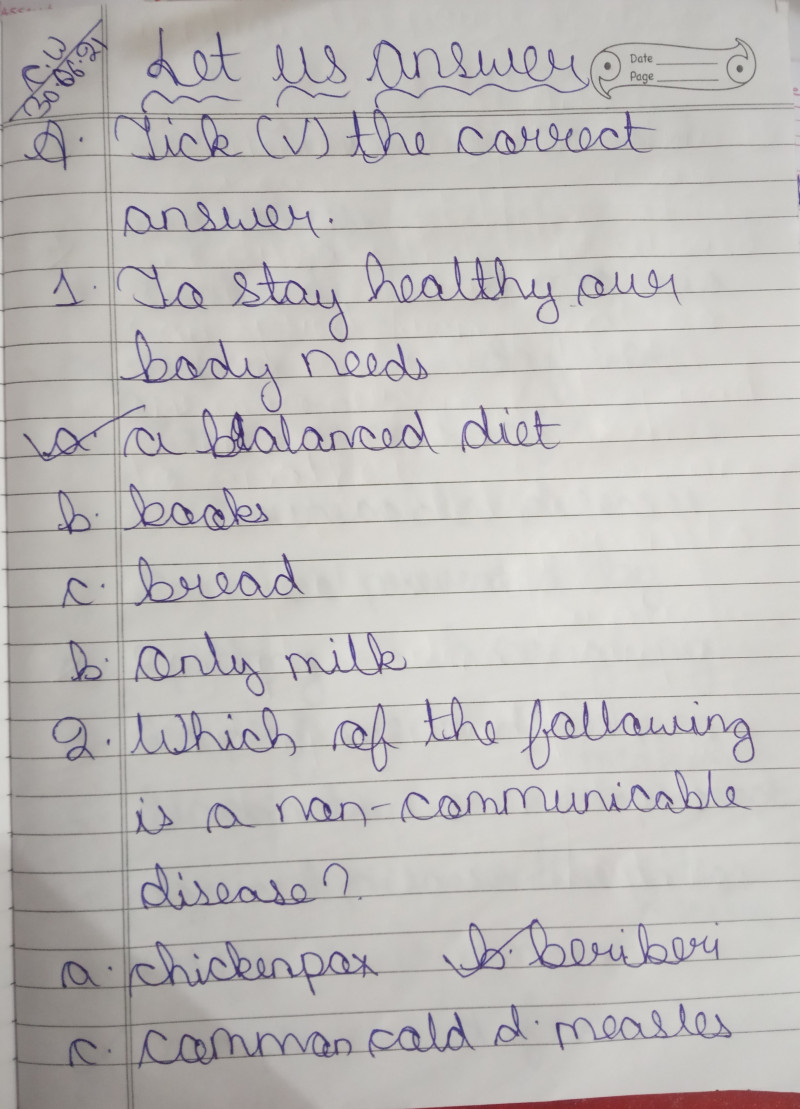 C.W
30.06.21
Let us answer
Date
Page
A. Tick (√) the correct
answer.
1. To stay healthy our
body needs
a. a balanced diet
b. books
c. bread
b. only milk
2. Which of the following
is a non-communicable
disease?
a. chickenpox b. beriberi
c. common cold d. measles